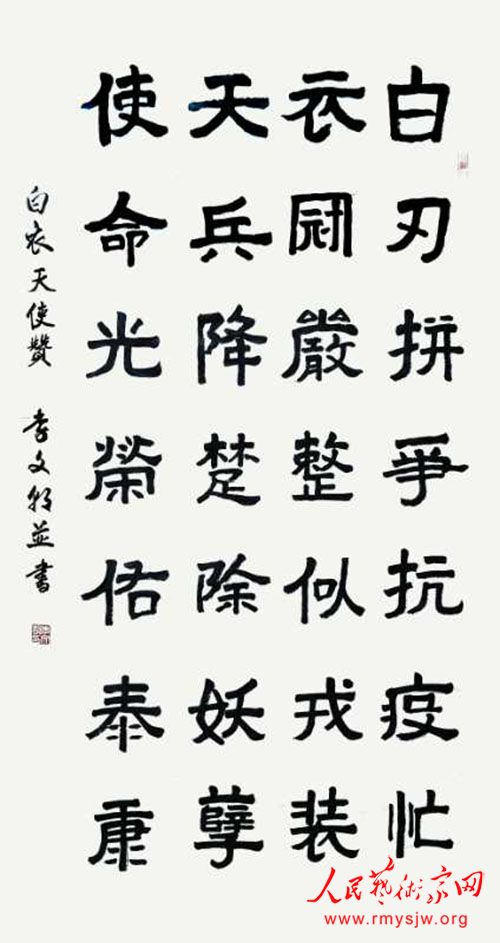 白刃拼爭抗疫忙
衣冠嚴整似戎装
天兵降楚除妖孽
使命光榮佑泰康
白衣天使贊 李文朝並書
人民藝術家网
www.rmysjw.org